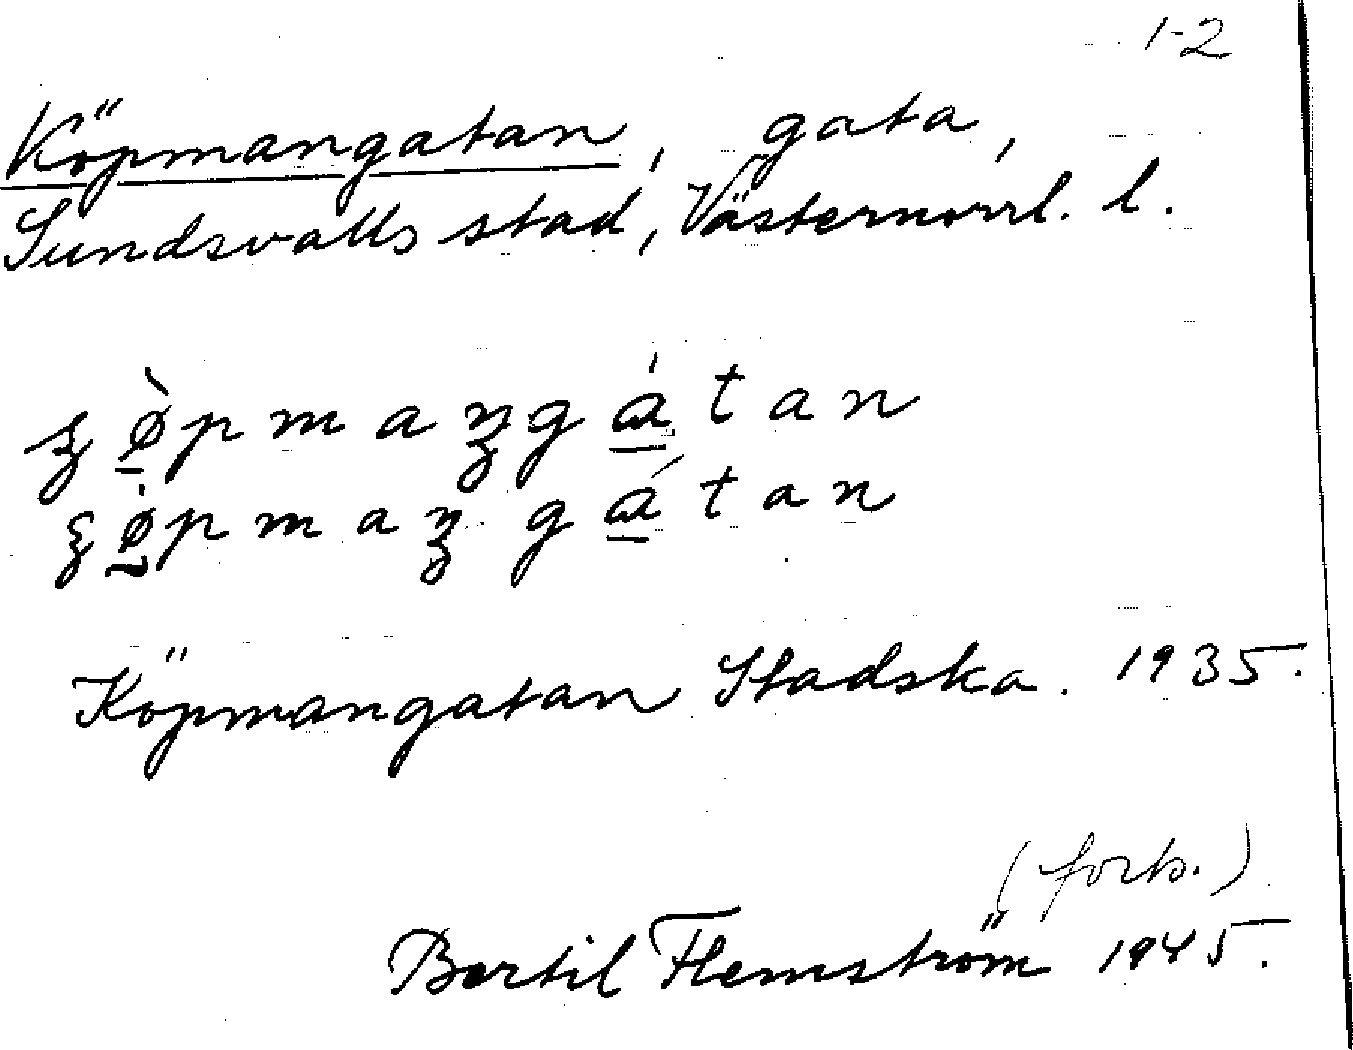 1-2
Köpmangatan, gata,
Sundsvalls stad, Västernorrl. l.
Köpmangatan Stadska. 1935.
(forts.)
Bertil Flemström 1945.